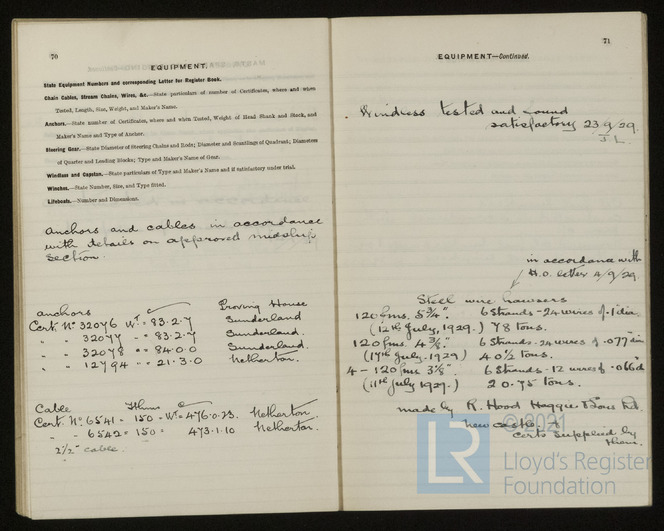 70
EQUIPMENT.
State Equipment Numbers and corresponding Letter for Register Book.
Chain Cables, Stream Chains, Wires, &c.—State particulars of number of Certificates, where and when
Tested, Length, Size, Weight, and Maker's Name.
Anchors.—State number of Certificates, where and when Tested, Weight of Head Shank and Stock, and
Maker's Name and Type of Anchor.
Steering Gear.—State Diameter of Steering Chains and Rods; Diameter and Scantlings of Quadrant; Diameters
of Quarter and Leading Blocks; Type and Maker's Name of Gear.
Windlass and Capstan.—State particulars of Type and Maker's Name and if satisfactory under trial.
Winches.—State Number, Size, and Type fitted.
Lifeboats.—Number and Dimensions.
Anchors and cables in accordance
with details on approved midship
section.
Anchors Proving House
Cert. No 32076 Wt = 83.2.7 Sunderland
" " 32077 " = 83.2.7 Sunderland.
" " 32078 " = 84.0.0 Sunderland.
" " 12794 " = 21.3.0 Netherton.
Cable
Cert. No. 6541 = 150 = Wt = 476.0.23. Netherton.
" " 6542 = 150 = 473.1.10 Netherton.
2½" cable.
71
EQUIPMENT—Continued.
Windlass tested and found
satisfactory 23/9/29.
J.L.
in accordance with
H.O. letter 4/9/29.
Steel wire hawsers
120 fms. 5¾". 6 Strands - 24 wires of .1" dia.
(12th July, 1929.) 78 tons.
120 fms. 4⅜". 6 Strands - 24 wires of .077 dia
(17th July. 1929) 40½ tons.
4 - 120 fms 3⅛". 6 Strands - 12 wires of .066 d
(11th July 1929.) 20.75 tons.
made by R. Hood Haggie & Sons Ltd.
Newcastle
Certs supplied by
them.
© 2021
LR
Lloyd's Register
Foundation